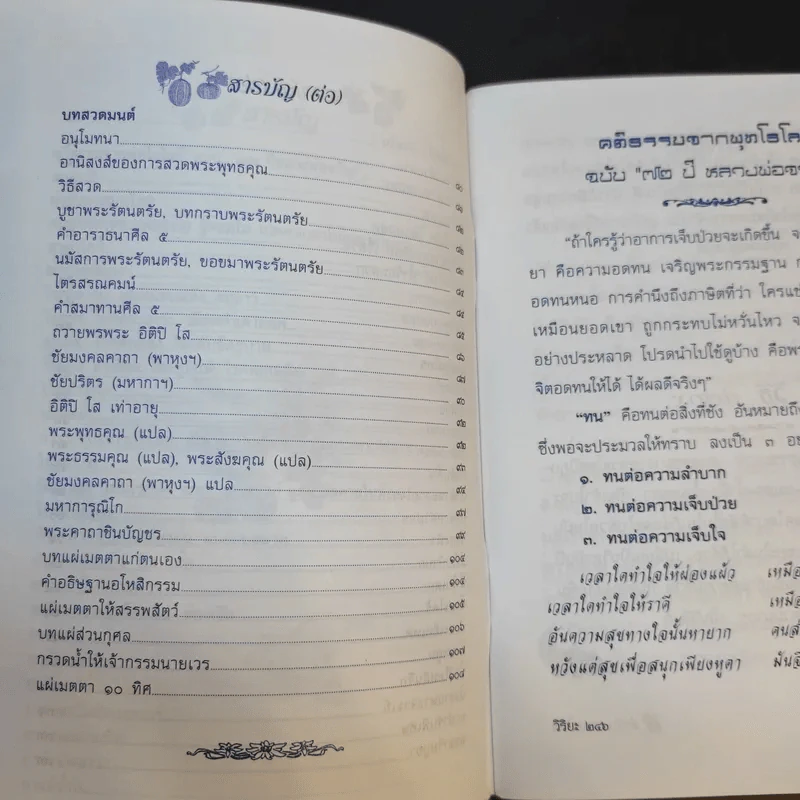 สารบัญ (ต่อ)
บทสวดมนต์
อนุโมทนา
อานิสงส์ของการสวดพระพุทธคุณ ๘๐
วิธีสวด ๘๑
บูชาพระรัตนตรัย, บทกราบพระรัตนตรัย ๘๒
คำอาราธนาศีล ๕ ๘๒
นมัสการพระรัตนตรัย, ขอขมาพระรัตนตรัย ๘๓
ไตรสรณคมน์ ๘๔
คำสมาทานศีล ๕ ๘๔
ถวายพรพระ อิติปิ โส ๘๕
ชัยมงคลคาถา (พาหุงฯ) ๘๖
ชัยปริตร (มหากาฯ) ๘๗
อิติปิ โส เท่าอายุ
พระพุทธคุณ (แปล) ๙๒
พระธรรมคุณ (แปล), พระสังฆคุณ (แปล) ๙๓
ชัยมงคลคาถา (พาหุงฯ) แปล ๙๔
มหาการุณิโก ๙๗
พระคาถาชินบัญชร ๙๙
บทแผ่เมตตาแก่ตนเอง ๑๐๔
คำอธิษฐานอโหสิกรรม ๑๐๔
แผ่เมตตาให้สรรพสัตว์ ๑๐๕
บทแผ่ส่วนกุศล ๑๐๖
กรวดน้ำให้เจ้ากรรมนายเวร ๑๐๗
แผ่เมตตา ๑๐ ทิศ ๑๐๘
คติธรรมจากพุทโธโล
ฉบับ "๗๒ ปี หลวงพ่อจ
"ถ้าใครรู้ว่าอาการเจ็บป่วยจะเกิดขึ้น จ
ยา คือความอดทน เจริญพระกรรมฐาน ก
อดทนหนอ การคำนึงถึงภาษิตที่ว่า ใครแช
เหมือนยอดเขา ถูกกระทบไม่หวั่นไหว จ
อย่างประหลาด โปรดนำไปใช้ดูบ้าง คือพ
จิตอดทนให้ได้ ได้ผลดีจริงๆ"
"ทน" คือทนต่อสิ่งที่ชัง อันหมายถึง
ซึ่งพอจะประมวลให้ทราบ ลงเป็น ๓ อย
๑. ทนต่อความลำบาก
๒. ทนต่อความเจ็บป่วย
๓. ทนต่อความเจ็บใจ
เวลาใดทำใจให้ผ่องแผ้ว เหมือ
เวลาใดทำใจให้ราคี เหมือ
อันความสุขทางใจนั้นหายาก คนส
หวังแต่สุขเพื่อสนุกเพียงหูตา มันจึ
วิริยะ ๒๔๖